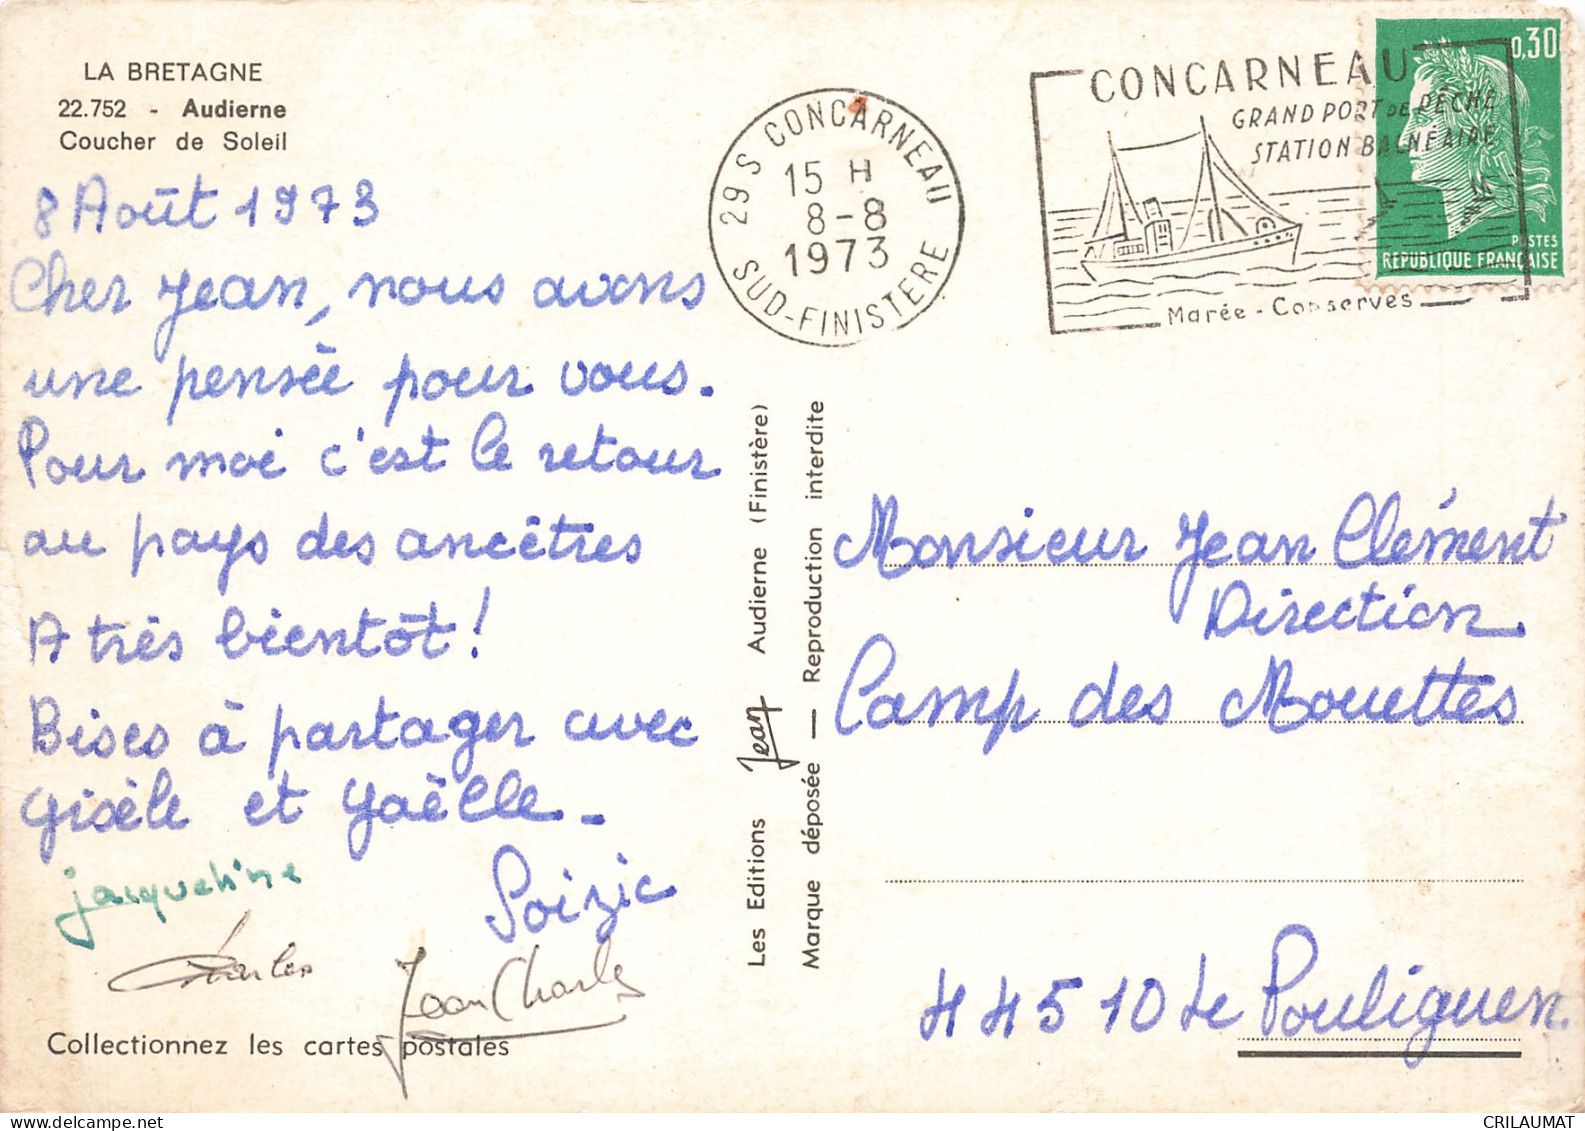 LA BRETAGNE
22.752 - Audierne
Coucher de Soleil
8 Août 1973
Cher Jean, nous avons
une pensée pour vous.
Pour moi c'est le retour
au pays des ancêtres
A très bientôt !
Bises à partager avec
Gisèle et Gaëlle _
Jacqueline
Soizic
Charles
Jean Charles
Collectionnez les cartes postales
Les Editions Jean Audierne (Finistère)
Marque déposée — Reproduction interdite
29 S CONCARNEAU
15 H
8-8
1973
SUD-FINISTERE
CONCARNEAU
GRAND PORT DE PÊCHE
STATION BALNÉAIRE
Marée - Conserves
0,30
POSTES
REPUBLIQUE FRANÇAISE
Monsieur Jean Clément
Direction
Camp des Mouettes
44510 Le Pouliguen
CRILAUMAT